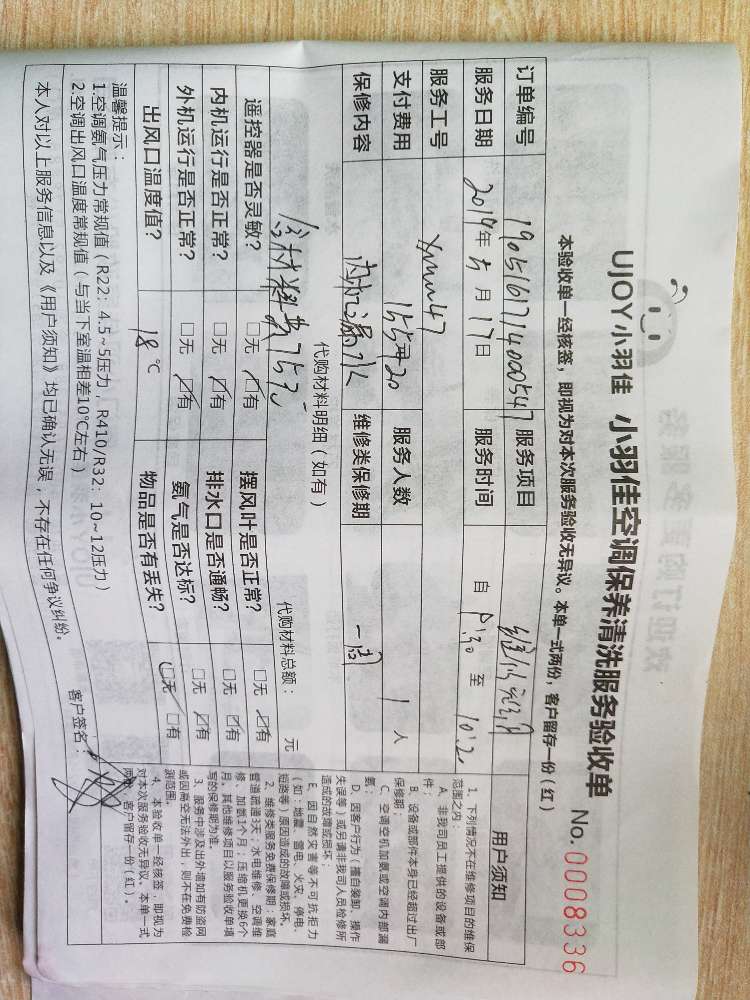 UJOY小羽佳 小羽佳空调保养清洗服务验收单
No.0008336
本验收单一经核签，即视为对本次服务验收无异议。本单一式两份，客户留存一份（红）
订单编号 190516171400547 服务项目
服务日期 2019年5月17日 服务时间 自 9:30 至 10:20
服务工号 服务人数 1 人
支付费用
保修内容 内机漏水 维修类保修期 一周
代购材料明细（如有） 代购材料总额： 元
遥控器是否灵敏？ □无 □有 摆风叶是否正常？ □无 □有
内机运行是否正常？ □无 □有 排水口是否通畅？ □无 □有
外机运行是否正常？ □无 □有 氨气是否达标？ □无 □有
出风口温度值？ 18 ℃ 物品是否有丢失？ □无 □有
温馨提示：
1.空调氨气压力常规值（R22：4.5~5压力，R410/R32：10~12压力）
2.空调出风口温度常规值（与当下室温相差10℃左右）
本人对以上服务信息以及《用户须知》均已确认无误，不存在任何争议纠纷。
客户签名：
用户须知
1、下列情况不在维修项目的维保
范围之内：
A、非我司员工提供的设备或部
件；
B、设备或部件本身已经超过出厂
保修期；
C、空调空机加氨或空调内部漏
氨；
D、因客户行为（擅自装卸、操作
失误等）或另请非我司人员检修所
造成的故障或损坏；
E、因自然灾害等不可抗拒力
（如：地震、雷电、火灾、停电、
短路等）原因造成的故障或损坏。
2、维修类服务免费保修期：家庭
管道疏通3天，水电维修、空调维
修、加氨1个月，压缩机更换6个
月，其他维修项目以服务验收单填
写的保修期为准。
3、服务中涉及出外墙如有防盗网
或因高空无法外出，则不在免费检
测范围。
4、本验收单一经核签，即视为
对本次服务验收无异议。本单一式
两份，客户留存一份（红）。